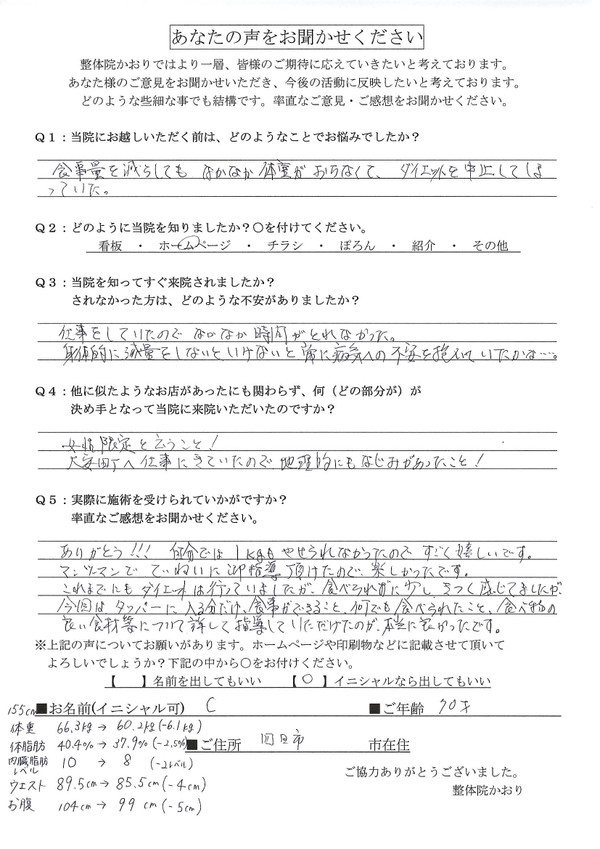 あなたの声をお聞かせください
整体院かおりではより一層、皆様のご期待に応えていきたいと考えております。
あなた様のご意見をお聞かせいただき、今後の活動に反映したいと考えております。
どのような些細な事でも結構です。率直なご意見・ご感想をお聞かせください。
Q1：当院にお越しいただく前は、どのようなことでお悩みでしたか？
食事量を減らしても なかなか体重がおちなくて、ダイエットを中止してしま
っていた。
Q2：どのように当院を知りましたか？〇を付けてください。
看板 ・ ホームページ ・ チラシ ・ ぽろん ・ 紹介 ・ その他
Q3：当院を知ってすぐ来院されましたか？
されなかった方は、どのような不安がありましたか？
仕事をしていたので なかなか時間がとれなかった。
身体的に減量をしないといけないと常に病気への不安を抱えていたかな…。
Q4：他に似たようなお店があったにも関わらず、何（どの部分が）が
決め手となって当院に来院いただいたのですか？
女性限定と云うこと！
へ仕事にきていたので地理的にもなじみがあったこと！
Q5：実際に施術を受けられていかがですか？
率直なご感想をお聞かせください。
ありがとう!!! では1kgもやせられなかったので すごく嬉しいです。
マンツーマンで ていねいに御指導頂けたので、楽しかったです。
これまでにもダイエットは行っていましたが、食べられずに少しきつく感じてましたが、
今回はタッパーに入る分だけ、食事ができること、何でも食べられたこと、食べ
良い食材等について詳しく指導していただけたのが、本当に良かったです。
※上記の声についてお願いがあります。ホームページや印刷物などに記載させて頂いて
よろしいでしょうか？下記の中から〇をお付けください。
【　】名前を出してもいい 【〇】イニシャルなら出してもいい
155cm ■お名前(イニシャル可) C ■ご年齢 70才
体重 66.3kg → 60.2kg(-6.1kg)
体脂肪 40.4% → 37.9% (-2.5%) ■ご住所 四日市 市在住
内臓脂肪レベル 10 → 8 (-2レベル)
ウエスト 89.5cm → 85.5cm (-4cm)
お腹 104cm → 99cm (-5cm)
ご協力ありがとうございました。
整体院かおり